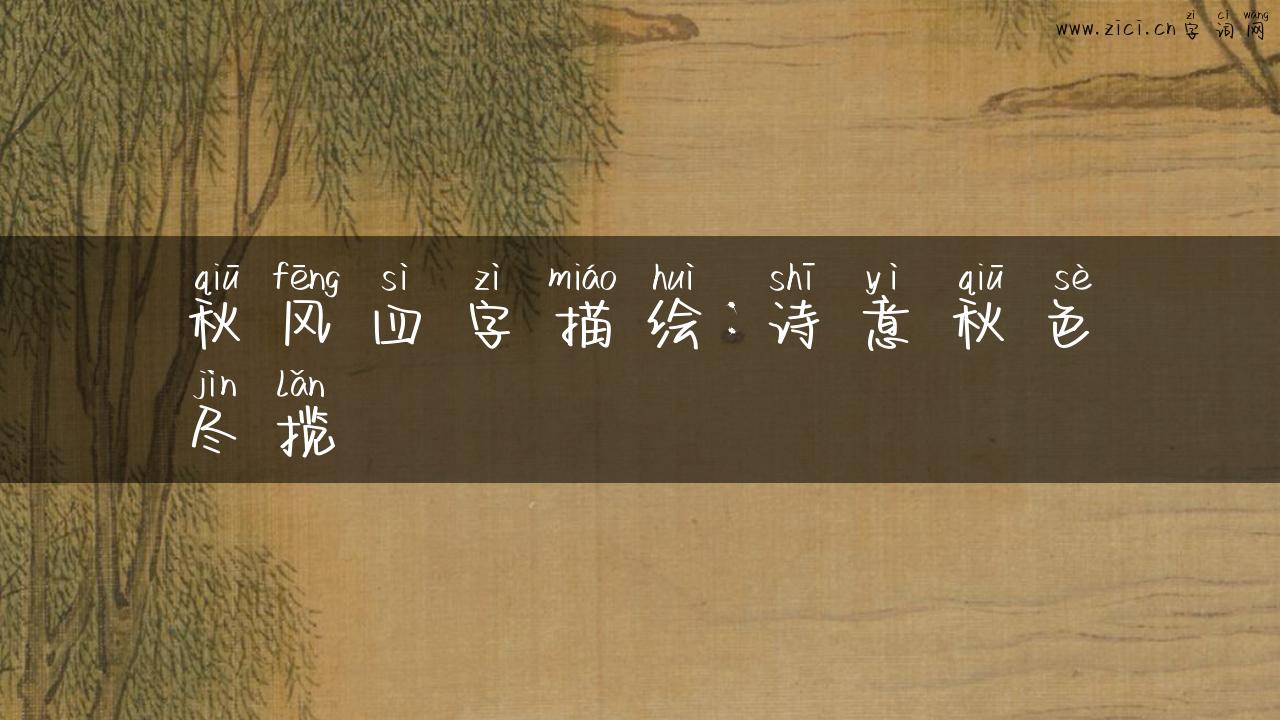 zì cí wǎng
www.zici.cn 字词网
qiū fēng sì zì miáo huì shī yì qiū sè
秋风四字描绘：诗意秋色
jìn lǎn
尽揽